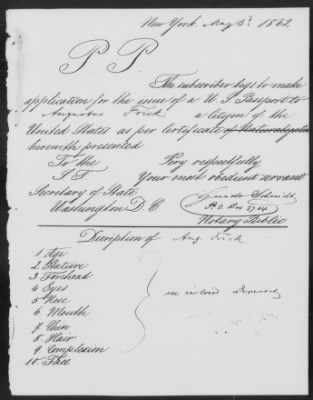 New York May 3d 1862
P P
The subscriber begs to make
application for the issue of a U S Passport to
Augustus Frick a Citizen of the
United States as per Certificate of Naturalization
herewith presented
To the Very respectfully
S S Your most obedient servant
Secretary of State Guido Schmidt
Washington D C P. O. Box 2704
Notary Public
Description of Aug. Frick
1 Age
2. Stature
3 Forehead
4 Eyes
5 Nose
6 Mouth
7 Chin
8 Hair
9. Complexion
10. Face
in inclosed